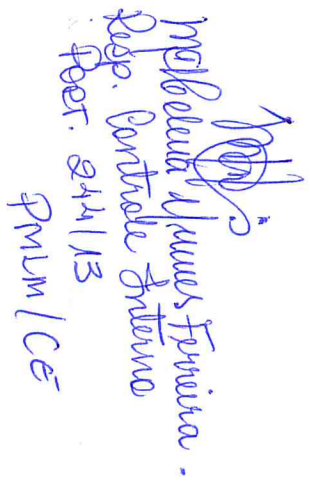 Mª Helena Nunes Ferreira.
Resp. Controle Interno
Port. 244/13
PMLM/CE